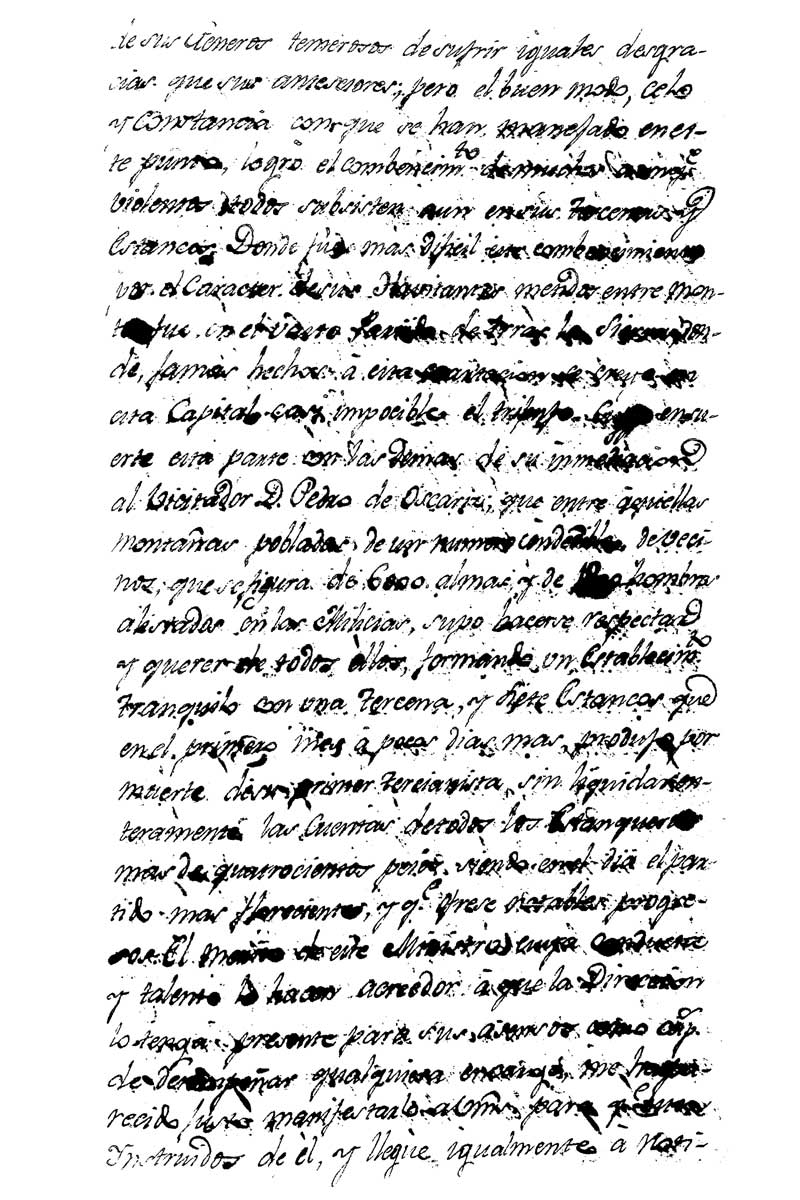 de sus Generos temerosos de sufrir iguales desgra-
cias que sus antesesores; pero el buen modo, celo
y Constancia con que se han manejado en es-
te punto, logró el combencim.to de muchos aunq.e
violentos todos subsisten aun en sus Tercenas y
Estancos. Donde fué mas dificil este combencimiento
por el Caracter de sus Havitantes metidos entre Mon-
tes fue en el Vasto Partido de tras la Sierra don-
de, jamas hechos á esta se creyo en
esta Capital casi impocible el triunfo. en su-
erte esta parte con las demas de su inmediacion
al Vicitador D. Pedro de Oscariz, que entre aquellas
montañas pobladas de un numero de Veci-
nos, que se figura de 6000 almas y de hombres
alistados en las Milicias, supo hacerse respectar
y querer de todos ellos, formando un Establecim.to
tranquilo con una Tercena, y siete Estancos que
en el primero mes á pocos dias mas, produjo por
muerte de su primer Tercianista, sin liquidar en-
teramente las Cuentas de todos los Estanqueros
mas de quatrocientos pesos. siendo en el dia el par-
tido mas floreciente, y q.e ofrese notables progre-
sos. El merito de este Ministro, cuya conducta
y talento lo hacen acreedor á que la Direccion
lo tenga presente para sus asensos como cap.
de desempeñar qualquiera encargo, me ha pa-
recido justo manifestarlo a Vms. para q.e
Instruidos de él, y llegue igualmente á Noti-